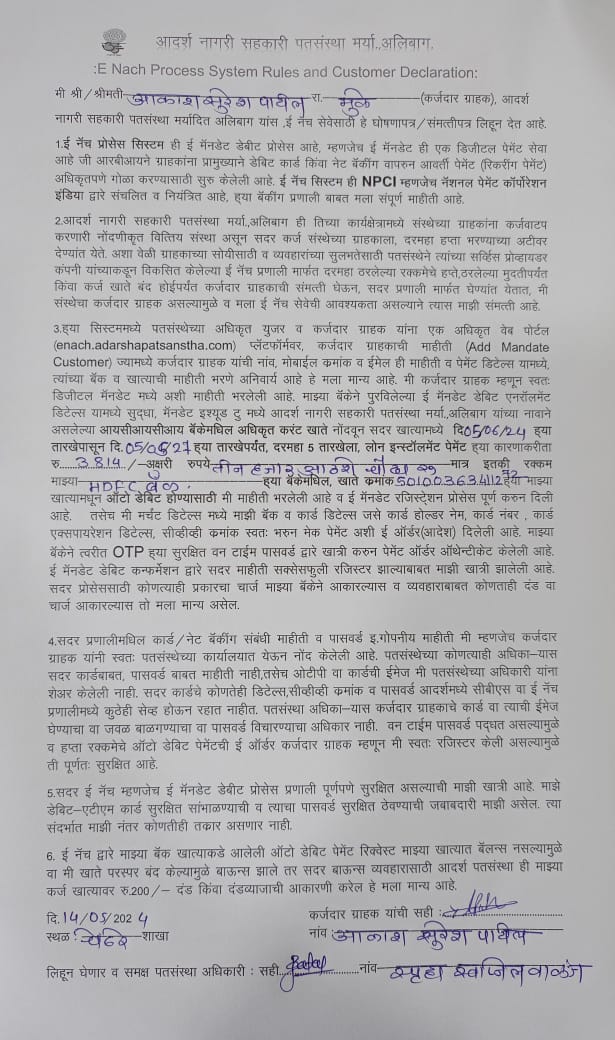 आदर्श नागरी सहकारी पतसंस्था मर्या.,अलिबाग.
:E Nach Process System Rules and Customer Declaration:
मी श्री/श्रीमती आकाश सुरेश पाटील रा. मुळे (कर्जदार ग्राहक), आदर्श
नागरी सहकारी पतसंस्था मर्यादित अलिबाग यांस ,ई नॅच सेवेसाठी हे घोषणापत्र/संमत्तीपत्र लिहून देत आहे.
1.ई नॅच प्रोसेस सिस्टम ही ई मॅनडेट डेबीट प्रोसेस आहे, म्हणजेच ई मॅनडेट ही एक डिजिटल पेमेंट सेवा
आहे जी आरबीआयने ग्राहकांना प्रामुख्याने डेबिट कार्ड किंवा नेट बँकींग वापरुन आवर्ती पेमेंट (रिकरींग पेमेंट)
अधिकृतपणे गोळा करण्यासाठी सुरु केलेली आहे. ई नॅच सिस्टम ही NPCI म्हणजेच नॅशनल पेमेंट कॉर्पोरेशन
इंडिया द्वारे संचलित व नियंत्रित आहे, ह्या बँकींग प्रणाली बाबत मला संपूर्ण माहीती आहे.
2.आदर्श नागरी सहकारी पतसंस्था मर्या.,अलिबाग ही तिच्या कार्यक्षेत्रामध्ये संस्थेच्या ग्राहकांना कर्जवाटप
करणारी नोंदणीकृत वित्तिय संस्था असून सदर कर्ज संस्थेच्या ग्राहकाला, दरमहा हप्ता भरण्याच्या अटीवर
देण्यांत येते. अशा वेळी ग्राहकाच्या सोयीसाठी व व्यवहारांच्या सुलभतेसाठी पतसंस्थेने त्यांच्या सर्व्हिस प्रोव्हायडर
कंपनी यांच्याकडून विकसित केलेल्या ई नॅच प्रणाली मार्फत दरमहा ठरलेल्या रक्कमेचे हप्ते,ठरलेल्या मुदतीपर्यंत
किंवा कर्ज खाते बंद होईपर्यंत कर्जदार ग्राहकाची संमत्ती घेऊन, सदर प्रणाली मार्फत घेण्यांत येतात, मी
संस्थेचा कर्जदार ग्राहक असल्यामुळे व मला ई नॅच सेवेची आवश्यकता असल्याने त्यास माझी संमत्ती आहे.
3.ह्या सिस्टममध्ये पतसंस्थेच्या अधिकृत युजर व कर्जदार ग्राहक यांना एक अधिकृत वेब पोर्टल
(enach.adarshapatsanstha.com) प्लॅटफॉर्मवर, कर्जदार ग्राहकाची माहीती (Add Mandate
Customer) ज्यामध्ये कर्जदार ग्राहक यांची नांव, मोबाईल क्रमांक व ईमेल ही माहीती व पेमेंट डिटेल्स यामध्ये,
त्यांच्या बँक व खात्याची माहीती भरणे अनिवार्य आहे हे मला मान्य आहे. मी कर्जदार ग्राहक म्हणून स्वतः
डिजीटल मॅनडेट मध्ये अशी माहीती भरलेली आहे. माझ्या बँकेने पुरविलेल्या ई मॅनडेट डेबिट एनरॉलमेंट
डिटेल्स यामध्ये सुद्धा, मॅनडेट इश्यूड टु मध्ये आदर्श नागरी सहकारी पतसंस्था मर्या.,अलिबाग यांच्या नावाने
असलेल्या आयसीआयसीआय बँकेमधिल अधिकृत करंट खाते नोंदवून सदर खात्यामध्ये दि05/06/24 ह्या
तारखेपासून दि.05/05/27 ह्या तारखेपर्यंत, दरमहा 5 तारखेला, लोन इन्स्टॉलमेंट पेमेंट ह्या कारणाकरीता
रु.3,814/-अक्षरी रुपये तीन हजार आठशे चौदा रु मात्र इतकी रक्कम
माझ्या HDFC बँक ह्या बँकेमधिल, खाते क्रमांक 50100363411272 ह्या माझ्या
खात्यामधून ऑटो डेबिट होण्यासाठी मी माहीती भरलेली आहे व ई मॅनडेट रजिस्ट्रेशन प्रोसेस पूर्ण करुन दिली
आहे. तसेच मी मर्चंट डिटेल्स मध्ये माझी बँक व कार्ड डिटेल्स जसे कार्ड होल्डर नेम, कार्ड नंबर , कार्ड
एक्सपायरेशन डिटेल्स, सीव्हीव्ही क्रमांक स्वतः भरुन मेक पेमेंट अशी ई ऑर्डर(आदेश) दिलेली आहे. माझ्या
बँकेने त्वरीत OTP ह्या सुरक्षित वन टाईम पासवर्ड द्वारे खात्री करुन पेमेंट ऑर्डर ऑथेन्टीकेट केलेली आहे.
ई मॅनडेट डेबिट कन्फर्मेशन द्वारे सदर माहीती सक्सेसफुली रजिस्टर झाल्याबाबत माझी खात्री झालेली आहे.
सदर प्रोसेससाठी कोणत्याही प्रकारचा चार्ज माझ्या बँकेने आकारल्यास व व्यवहाराबाबत कोणताही दंड वा
चार्ज आकारल्यास तो मला मान्य असेल.
4.सदर प्रणालीमधिल कार्ड/नेट बँकींग संबंधी माहीती व पासवर्ड इ.गोपनीय माहीती मी म्हणजेच कर्जदार
ग्राहक यांनी स्वतः पतसंस्थेच्या कार्यालयात येऊन नोंद केलेली आहे. पतसंस्थेच्या कोणत्याही अधिका-यास
सदर कार्डबाबत, पासवर्ड बाबत माहीती नाही,तसेच ओटीपी वा कार्डची ईमेज मी पतसंस्थेच्या अधिकारी यांना
शेअर केलेली नाही. सदर कार्डचे कोणतेही डिटेल्स,सीव्हीव्ही क्रमांक व पासवर्ड आदर्शमध्ये सीबीएस वा ई नॅच
प्रणालीमध्ये कुठेही सेव्ह होऊन रहात नाहीत. पतसंस्था अधिका-यास कर्जदार ग्राहकाचे कार्ड वा त्याची ईमेज
घेण्याचा वा जवळ बाळगण्याचा वा पासवर्ड विचारण्याचा अधिकार नाही. वन टाईम पासवर्ड पद्धत असल्यामुळे
व हप्ता रक्कमेचे ऑटो डेबिट पेमेंटची ई ऑर्डर कर्जदार ग्राहक म्हणून मी स्वतः रजिस्टर केली असल्यामुळे
ती पूर्णतः सुरक्षित आहे.
5.सदर ई नॅच म्हणजेच ई मॅनडेट डेबीट प्रोसेस प्रणाली पूर्णपणे सुरक्षित असल्याची माझी खात्री आहे. माझे
डेबिट–एटीएम कार्ड सुरक्षित सांभाळण्याची व त्याचा पासवर्ड सुरक्षित ठेवण्याची जबाबदारी माझी असेल. त्या
संदर्भात माझी नंतर कोणतीही तकार असणार नाही.
6. ई नॅच द्वारे माझ्या बँक खात्याकडे आलेली ऑटो डेबिट पेमेंट रिक्वेस्ट माझ्या खात्यात बॅलन्स नसल्यामुळे
वा मी खाते परस्पर बंद केल्यामुळे बाऊन्स झाले तर सदर बाऊन्स व्यवहारासाठी आदर्श पतसंस्था ही माझ्या
कर्ज खात्यावर रु.200/– दंड किंवा दंडव्याजाची आकारणी करेल हे मला मान्य आहे.
दि.14/05/2024 कर्जदार ग्राहक यांची सही :
स्थळ : चेंढरे शाखा नांव आकाश सुरेश पाटील
लिहून घेणार व समक्ष पतसंस्था अधिकारी : सही नांव स्पृहा स्वप्निल वाळंज